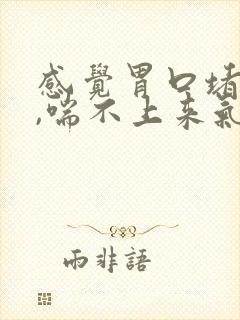 感覺胃口堵
,喘不上来氣
雨非語